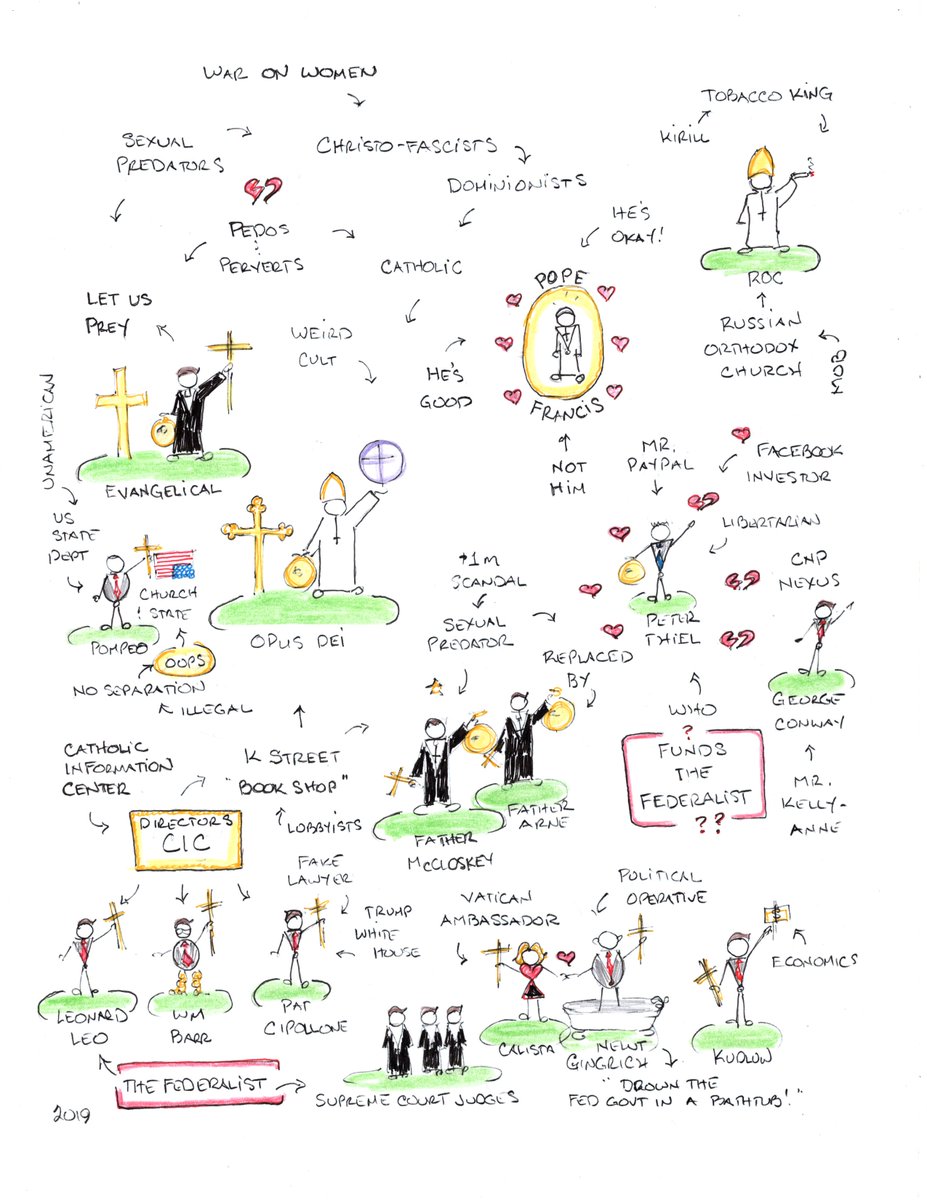 WAR ON WOMEN
TOBACCO KING
KIRILL
SEXUAL
PREDATORS
CHRISTO-FASCISTS
DOMINIONISTS
PEDOS
PERVERTS
CATHOLIC
HE'S
OKAY!
ROC
POPE
FRANCIS
LET US
PREY
WEIRD
CULT
HE'S
GOOD
RUSSIAN
ORTHODOX
CHURCH
MOB
UNAMERICAN
EVANGELICAL
NOT
HIM
MR.
PAYPAL
FACEBOOK
INVESTOR
LIBERTARIAN
US
STATE
DEPT
CHURCH
STATE
POMPEO
OOPS
NO SEPARATION
ILLEGAL
OPUS DEI
$1M
SCANDAL
SEXUAL
PREDATOR
REPLACED
BY
PETER
THIEL
CNP
NEXUS
GEORGE
CONWAY
MR.
KELLY-
ANNE
WHO
?
FUNDS
THE
FEDERALIST
??
CATHOLIC
INFORMATION
CENTER
K STREET
"BOOK SHOP"
LOBBYISTS
DIRECTORS
CIC
FATHER
McCLOSKEY
FATHER
ARNE
FAKE
LAWYER
TRUMP
WHITE
HOUSE
VATICAN
AMBASSADOR
POLITICAL
OPERATIVE
$
ECONOMICS
LEONARD
LEO
WM
BARR
PAT
CIPOLLONE
CALISTA
NEWT
GINGRICH
KUDLOW
THE FEDERALIST
SUPREME COURT JUDGES
"DROWN THE
FED GOVT IN A BATHTUB!"
2019